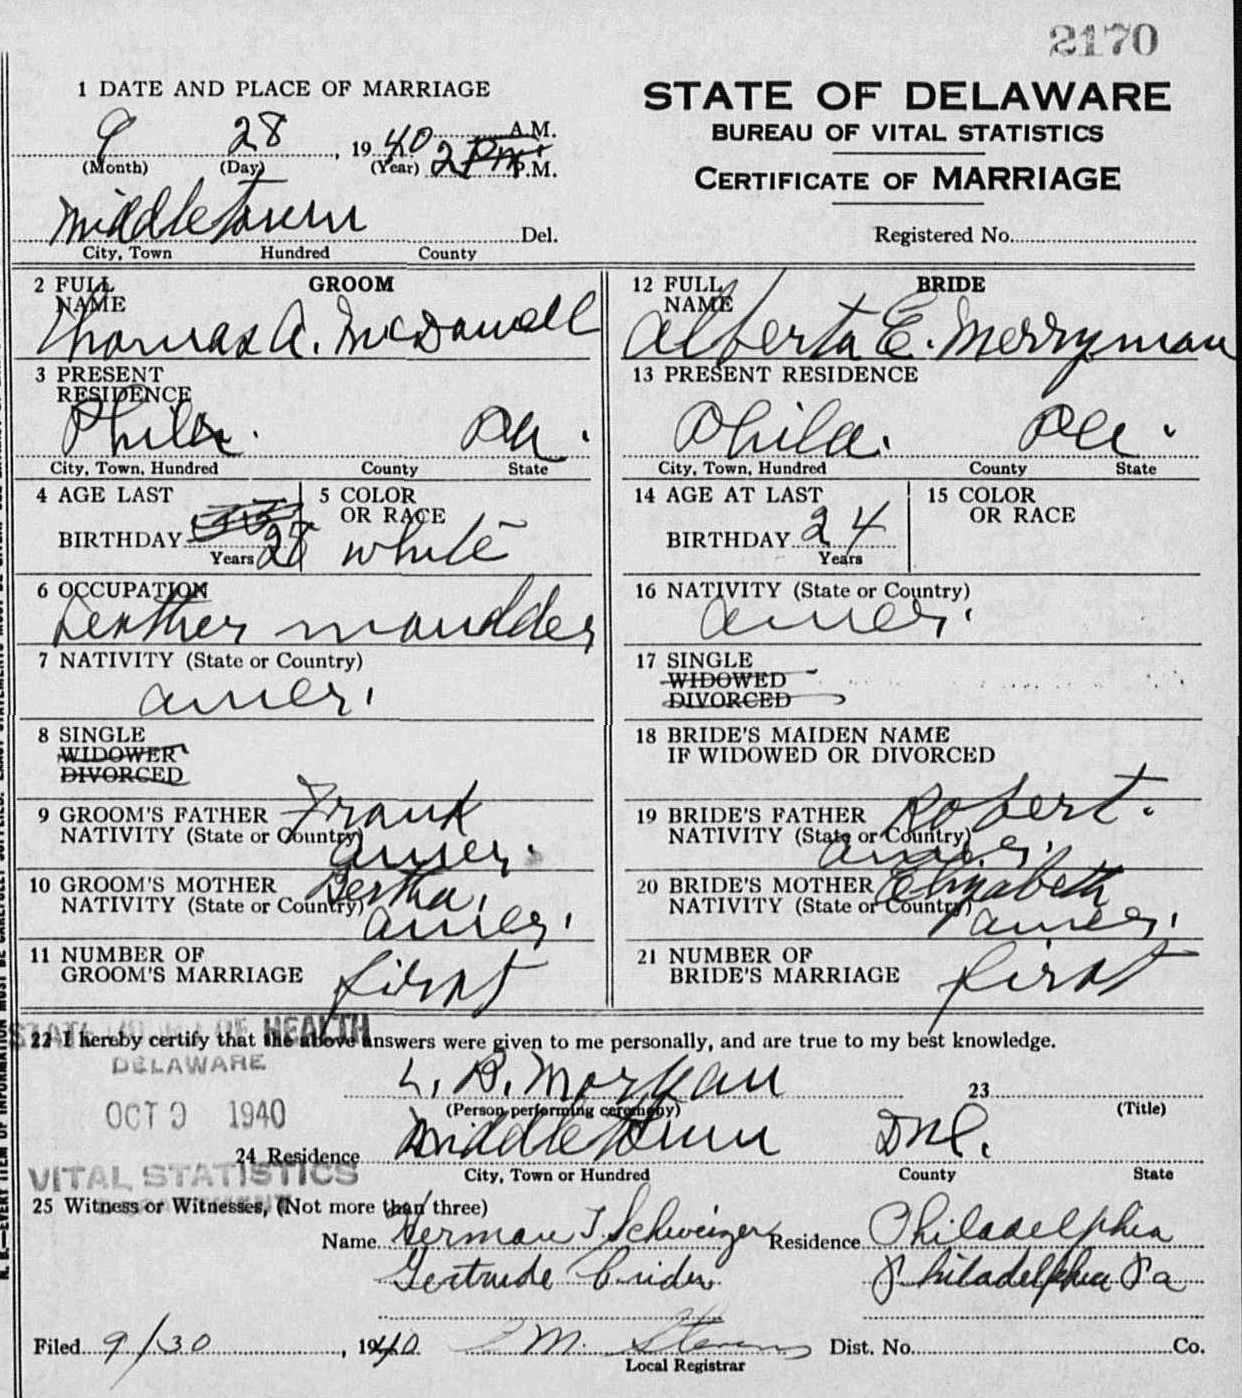 2170
1 DATE AND PLACE OF MARRIAGE
9 28, 1940 2 Pm. A.M.
(Month) (Day) (Year) P.M.
Middletown Del.
City, Town Hundred County
STATE OF DELAWARE
BUREAU OF VITAL STATISTICS
CERTIFICATE OF MARRIAGE
Registered No.
2 FULL NAME GROOM
Thomas A. McDowell
3 PRESENT RESIDENCE
Phila. Pa.
City, Town, Hundred County State
4 AGE LAST BIRTHDAY 28 Years
5 COLOR OR RACE white
6 OCCUPATION
Leather moudder
7 NATIVITY (State or Country)
amer.
8 SINGLE
WIDOWER
DIVORCED
9 GROOM'S FATHER Frank
NATIVITY (State or Country) amer.
10 GROOM'S MOTHER Bertha,
NATIVITY (State or Country) amer.
11 NUMBER OF
GROOM'S MARRIAGE first
12 FULL NAME BRIDE
Alberta E. Merryman
13 PRESENT RESIDENCE
Phila. Pa.
City, Town, Hundred County State
14 AGE AT LAST
BIRTHDAY 24
Years
15 COLOR
OR RACE
16 NATIVITY (State or Country)
amer.
17 SINGLE
WIDOWED
DIVORCED
18 BRIDE'S MAIDEN NAME
IF WIDOWED OR DIVORCED
19 BRIDE'S FATHER Robert.
NATIVITY (State or Country) amer.
20 BRIDE'S MOTHER Elizabeth
NATIVITY (State or Country) amer.
21 NUMBER OF
BRIDE'S MARRIAGE first
STATE BOARD OF HEALTH
22 I hereby certify that the above answers were given to me personally, and are true to my best knowledge.
DELAWARE
L. B. Morgan 23
(Person performing ceremony) (Title)
OCT 9 1940
24 Residence Middletown Del.
City, Town or Hundred County State
VITAL STATISTICS
DEPARTMENT
25 Witness or Witnesses, (Not more than three)
Name Herman J. Schweizer Residence Philadelphia
Gertrude Philadelphia Pa
Filed 9/30, 1940 M. Stevens Dist. No. Co.
Local Registrar
N. B.—EVERY ITEM OF INFORMATION MUST BE CAREFULLY SUPPLIED.